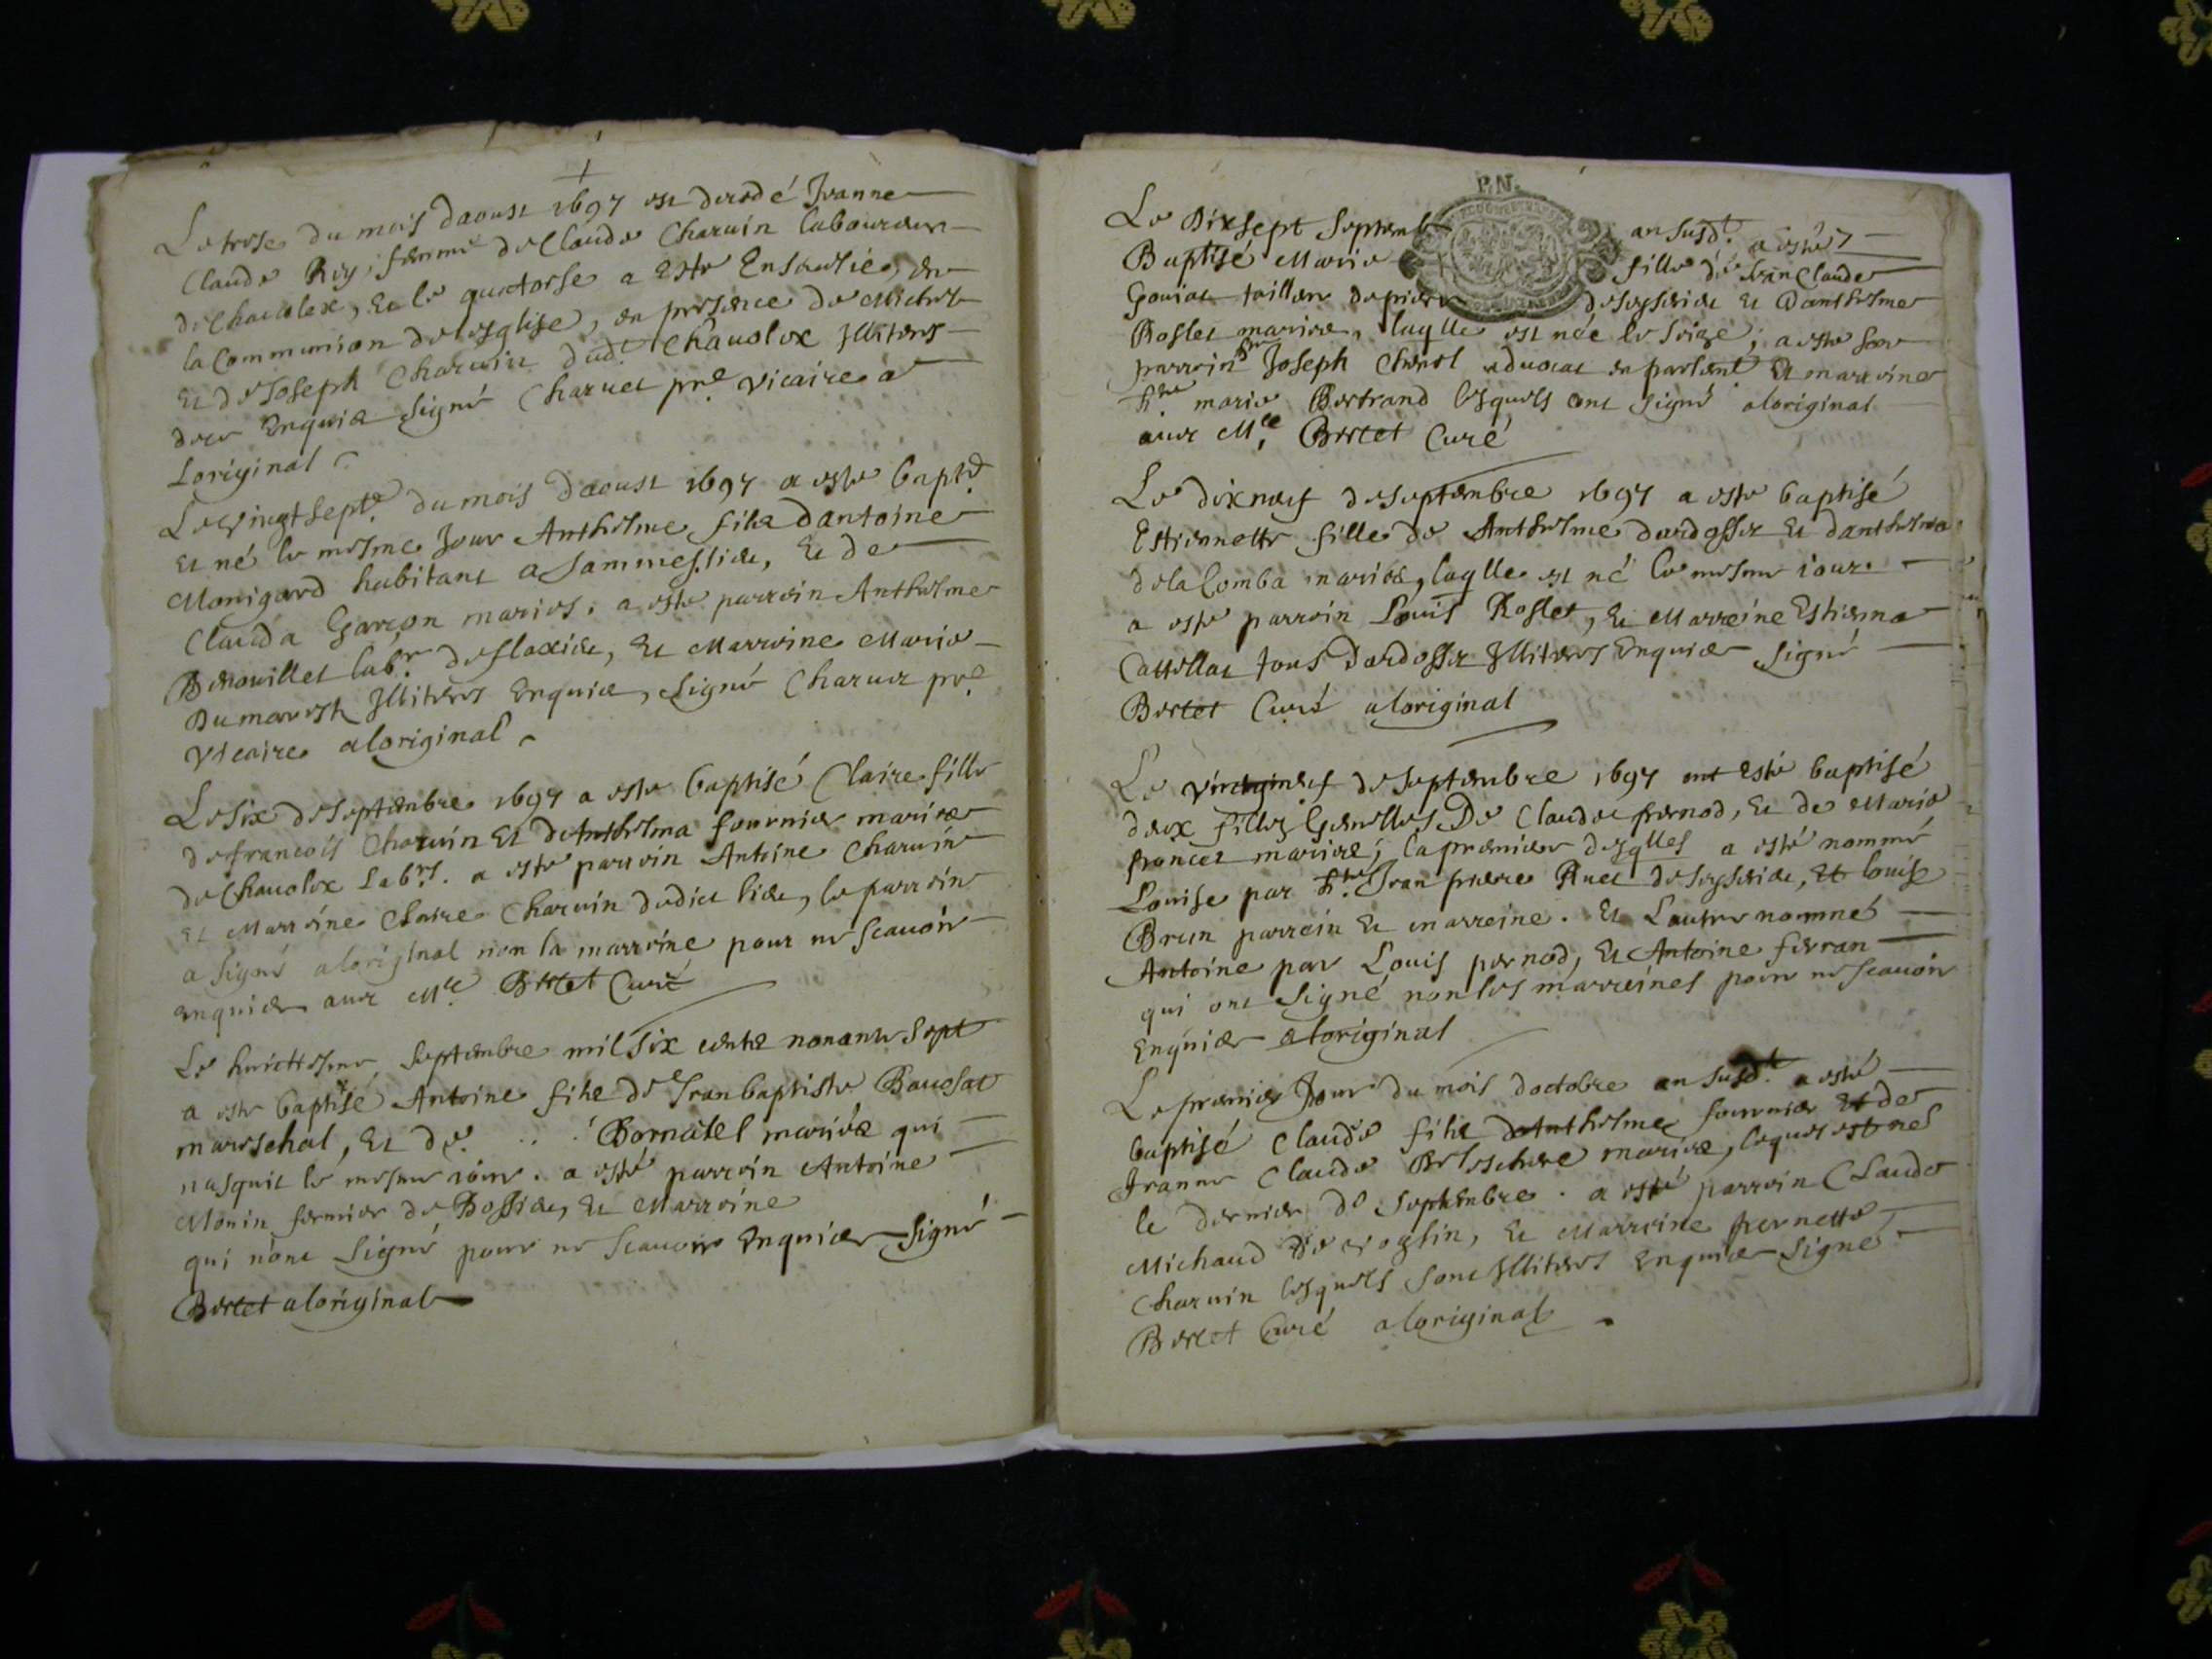 Le trese du mois daoust 1697 est decedé Jeanne
Claude Rey, femme de Claude Charuin laboureur
de Chauolex, et le quatorse a este Ensevelie, en
la Communion de lesglise, en presence de Michel
et de Joseph Charuin dud.t Chauolex Illiteres
dece Enquis Signé Charuet pre vicaire a
Loriginal
Le vingtsept.e du mois daoust 1697 a este bapt.é
et né le mesme Jour Anthelme fils dantoine
Monigard habitant a Sammessieu, et de
Clauda Garçon maries. a este parrein Anthelme
Benouillet lab.r de flaxieu, et Marreine Marie
Dumarest Illiteres Enquis, Signé Charuet pre
Vicaire aloriginal
Le six de septembre 1697 a este baptisé Claire fille
de francois Charuin et de Anthelma fournier maries
de Chauolex Lab.rs. a este parrein Antoine Charuin
et Marreine Claire Charuin dudict lieu, le parrein
a signé aloriginal non la marreine pour ne scauoir
enquise auec M.re Bertet Curé
Le huictiesme Septembre mil six cents nonante sept
a este baptisé Antoine fils de Jean baptiste Bauosat
mareschal, et de . . . Bornatel maries qui
nasquit le mesme iour. a esté parrein Antoine
Monin fermier de Bossieu, et Marreine
qui nont signé pour ne scauoir Enquis Signé
Bertet aloriginal
P.N.
Le Dixsept Septemb an susd.t a esté
Baptisé Marie fille de Jean Claude
Goniat tailleur de pierre de seysserieu et danthelme
Roslet maries, laqlle est née le seize; a este son
parrein Sr Joseph Chenel aduocat en parlement et marreine
h.te marie Bertrand lesquels ont signé aloriginal
auec M.re Bertet Curé
Le dixneuf de septembre 1697 a este baptisé
Estiennette fille de Anthelme dardosser et danthelma
de la Comba maries, laqlle est né le mesme iour.
a este parrein Louis Roslet, et Marreine Estienna
Catellat tous dardosser Illiteres Enquis Signé
Bertet Curé aloriginal
Le vingtneuf de septembre 1697 ont este baptisé
deux filles Gemelles De Claude fornod, et de Marie
francet maries; la premiere desqlles a esté nommé
Louise par h.te Jean pierre Ruet de seysserieu, et louise
Brun parrein et marreine. Et Lautre nommé
Antoine par Louis pernod, et Antoine ferran
qui ont signé non les marreines pour ne scauoir
Enquis aloriginal
Le premier Jour du mois doctobre an susd.t a esté
baptisé Claude fils dAnthelme fournier et de
Jeanne Claude maries, lequel est né
le dernier de septembre. a esté parrein Claude
Michaud de voglin, et Marreine pernette
Charuin lesquels sont Illiteres Enquis Signé
Bertet Curé aloriginal